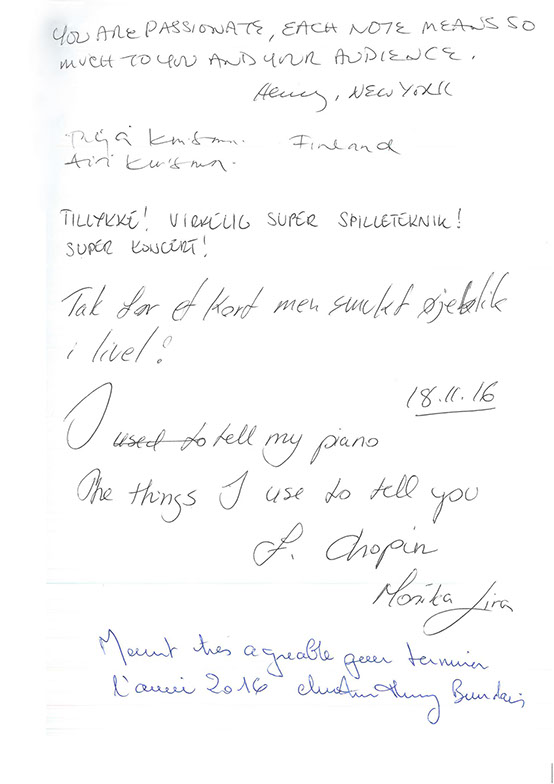 YOU ARE PASSIONATE, EACH NOTE MEANS SO
MUCH TO YOU AND YOUR AUDIENCE.
Henry, NEW YORK
Finland
Airi
TILLYKKE! VIRKELIG SUPER SPILLETEKNIK!
SUPER KONCERT!
Tak for et kort men smukt øjeblik
i livet!
18.11.16
I used to tell my piano
The things I use to tell you
F. Chopin
Monika Jira
très agréable pour terminer
l'année 2016